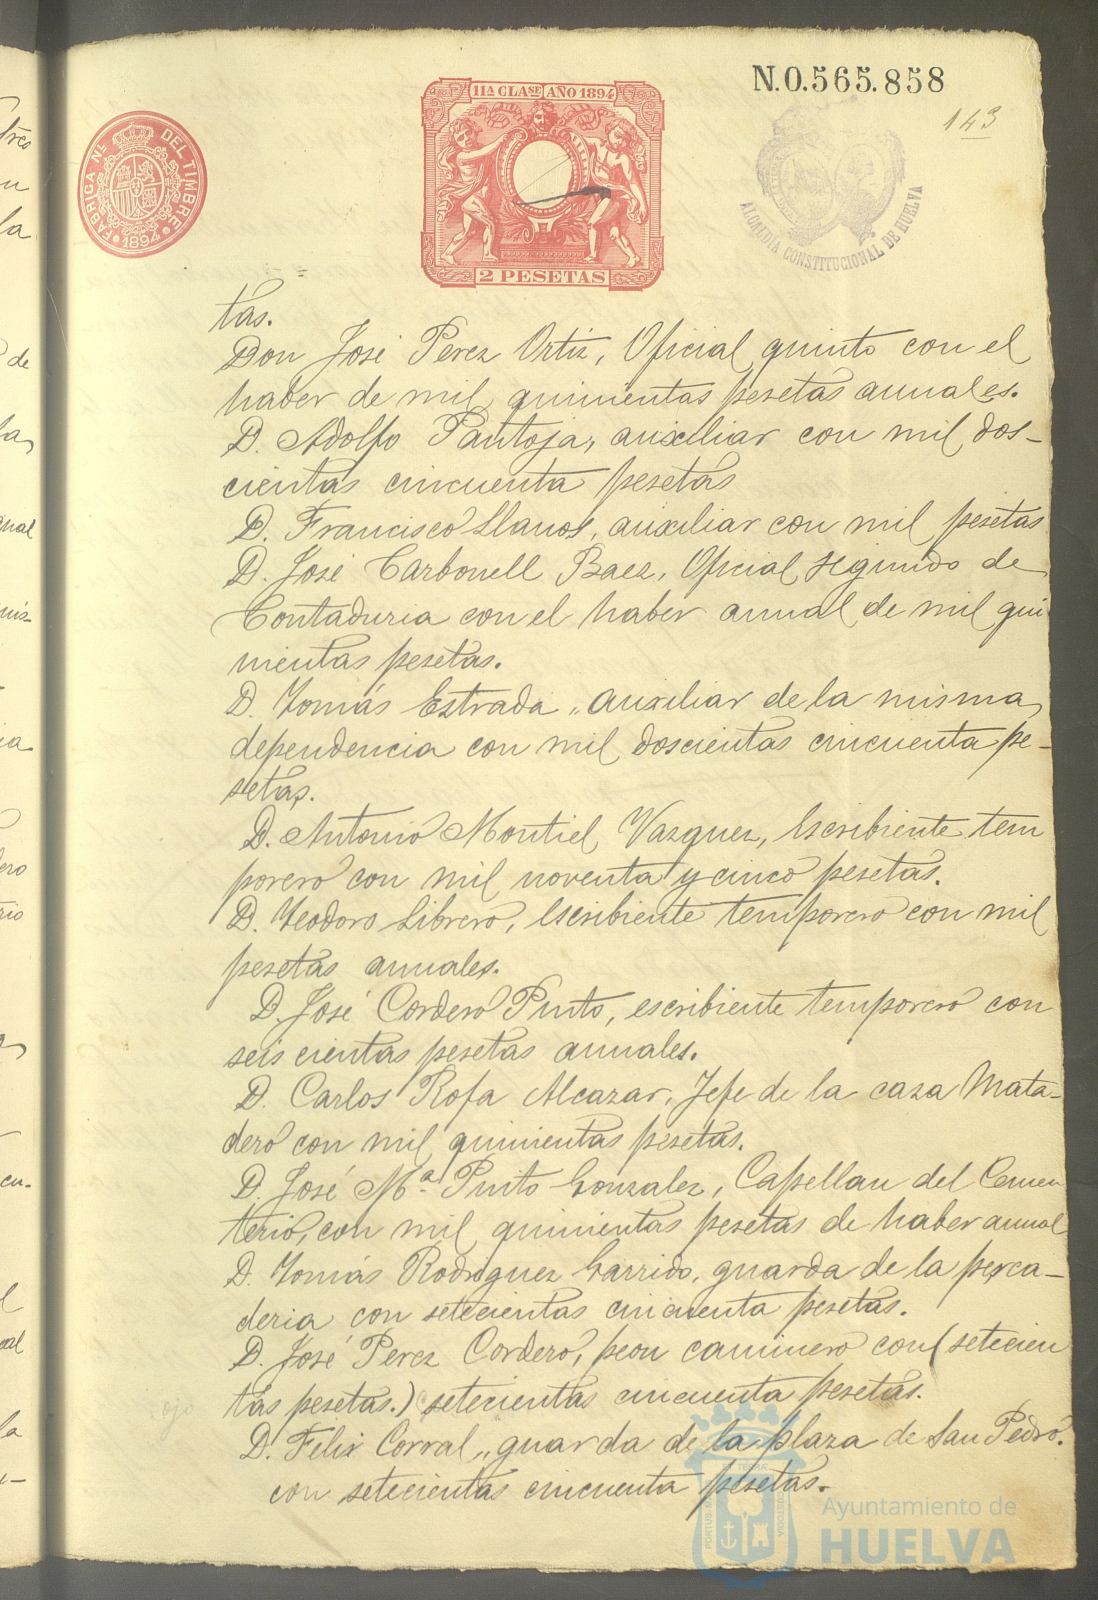 N.0.565.858
143
11ª CLASE AÑO 1894
2 PESETAS
FABRICA NAL DEL TIMBRE
1894
ALCALDIA CONSTITUCIONAL DE HUELVA
tas.
Don José Perez Ortiz, Oficial quinto con el
haber de mil quinientas pesetas annales.
D. Adolfo Pantoja, auxiliar con mil dos-
cientas cincuenta pesetas
D. Francisco Llanos, auxiliar con mil pesetas
D. José Carbonell Baez, Oficial segundo de
Contaduria con el haber annal de mil qui
nientas pesetas.
D. Tomás Estrada, auxiliar de la misma
dependencia con mil doscientas cincuenta pe-
setas.
D. Antonio Montiel Vazquez, Escribiente tem
porero con mil noventa y cinco pesetas.
D. Teodoro Librero, Escribiente temporero con mil
pesetas annales.
D. José Cordero Pinto, escribiente temporero con
seis cientas pesetas annales.
D. Carlos Rofa Alcazar, Jefe de la casa Mata-
dero con mil quinientas pesetas.
D. José Mª Pinto Gonzalez, Capellan del Cemen
terio, con mil quinientas pesetas de haber annal
D. Tomás Rodriguez Garrido, guarda de la pesca-
deria con setecientas cincuenta pesetas.
D. José Perez Cordero, peon caminero con (setecien
tas pesetas.) setecientas cincuenta pesetas.
ojo
D. Felix Corral, guarda de la plaza de San Pedro.
con setecientas cincuenta pesetas.
Ayuntamiento de
HUELVA